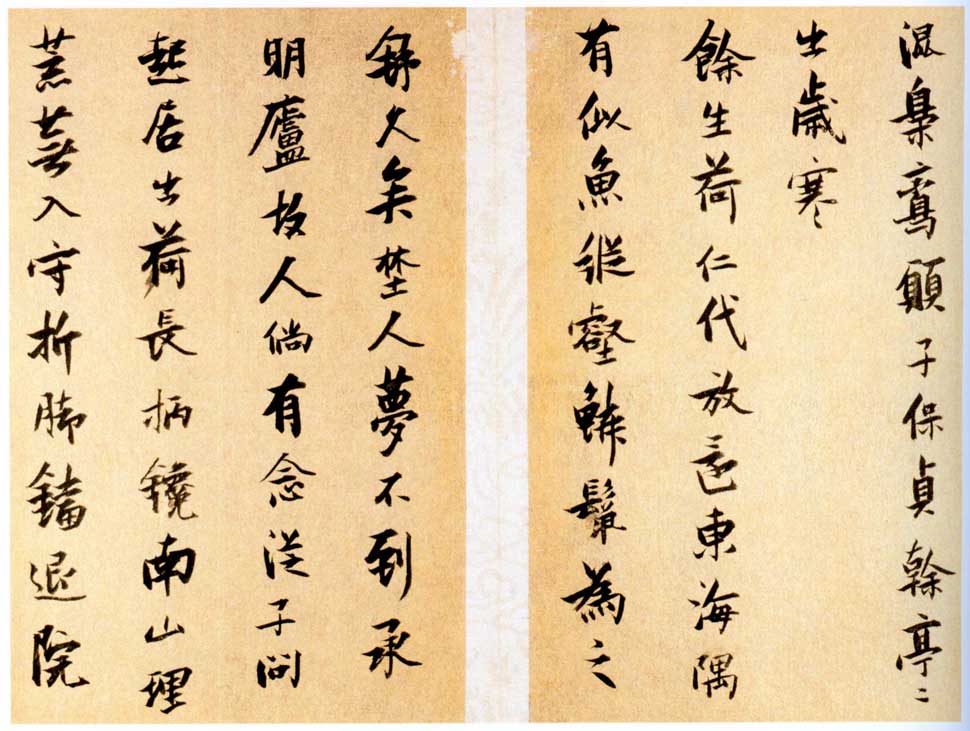 混梟鸞願子保貞幹亭〻
出歲寒
餘生荷仁代放還東海隅
有似魚縱壑鱗鬣為之
舒久矣埜人夢不到承
明廬故人倘有念從子問
起居出荷長柄鑱南山理
荒蕪入守折腳鐺退院